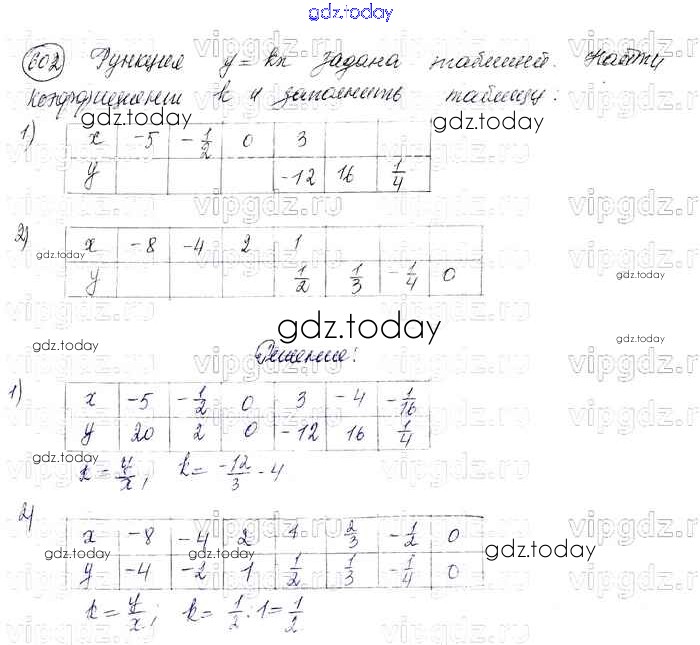 gdz.today
602 Функция y = kx задана таблицей. Найти
коэффициент k и заполнить таблицу:
gdz.today
gdz.today
1)
x -5 -1/2 0 3
y -12 16 1/4
2)
gdz.today
x -8 -4 2 1
y 1/2 1/3 -1/4 0
gdz.today
gdz.today
gdz.today
gdz.today
Решение:
1)
x -5 -1/2 0 3 -4 -1/16
y 20 2 0 -12 16 1/4
gdz.today
k = y/x; k = -12/3 - 4
2)
x -8 -4 2 1 2/3 -1/2 0
y -4 -2 1 1/2 1/3 -1/4 0
gdz.today
gdz.today
gdz.today
k = y/x; k = 1/2 : 1 = 1/2
vipgdz.ru